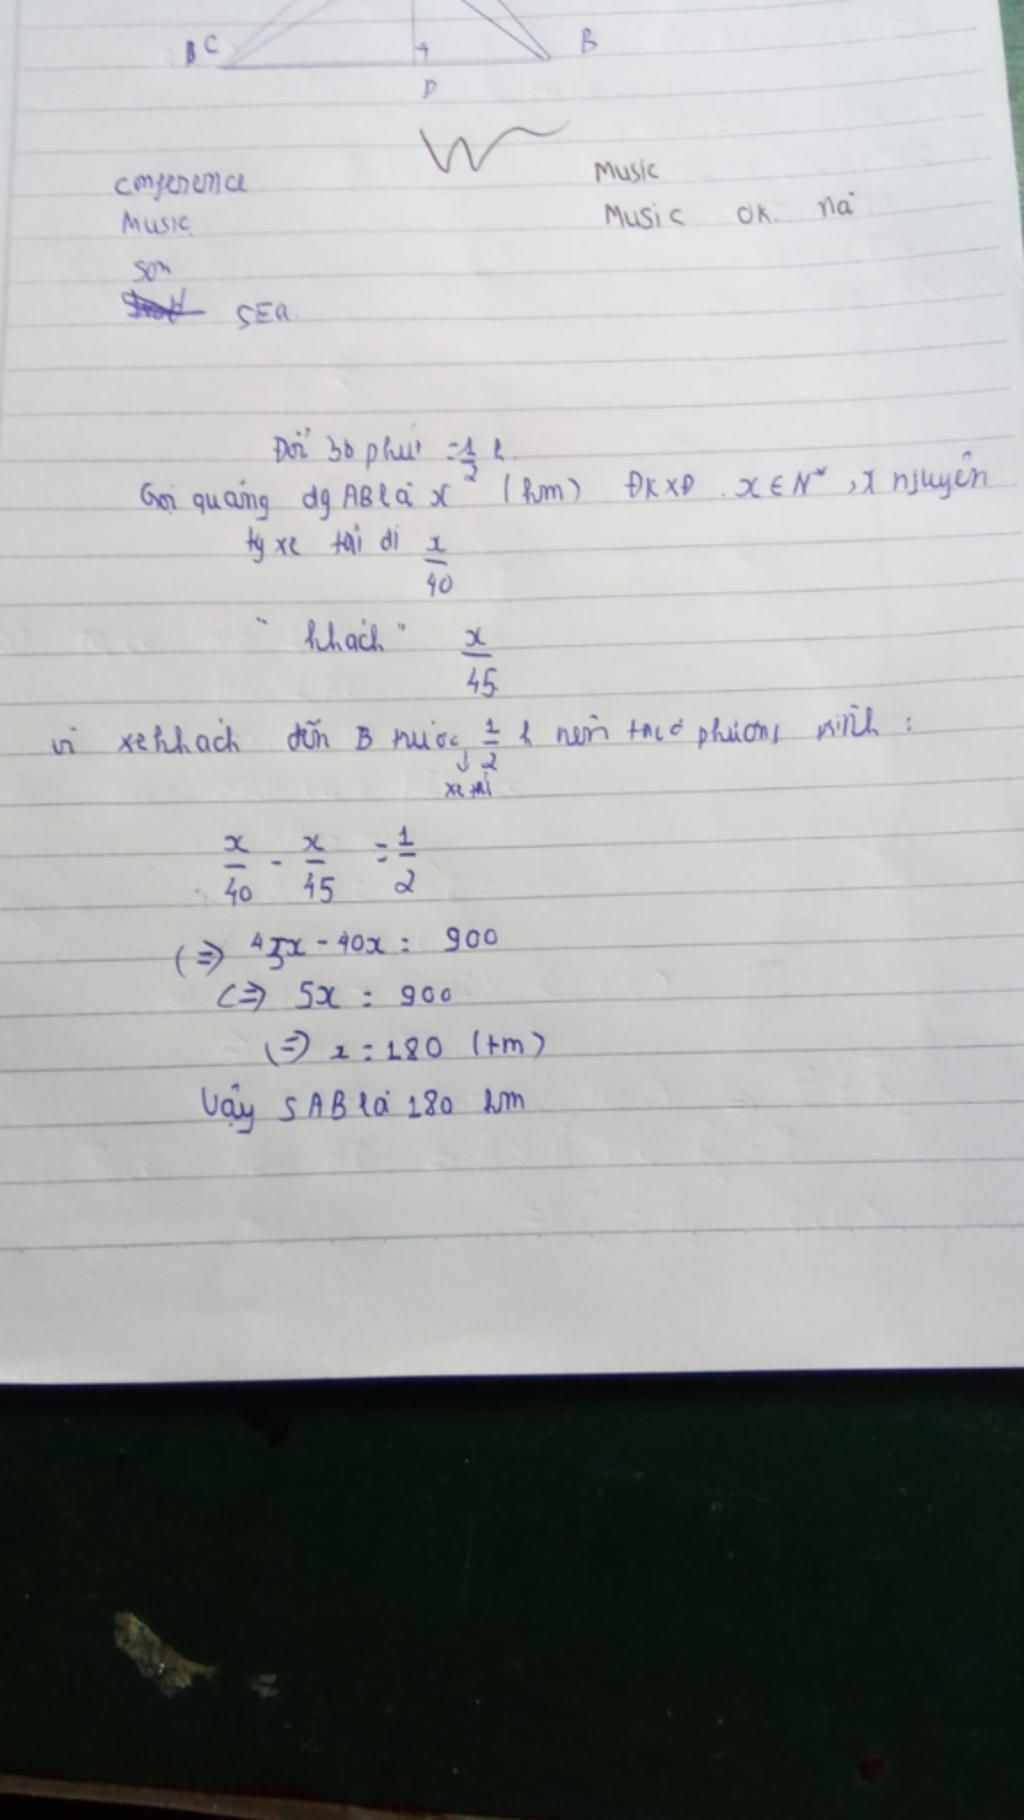 C B
D
conference Music
Music Music ok. na
son
SEA.
Đổi 30 phút = 1/2 h.
Gọi quãng đg AB là x (km) ĐKXĐ x ∈ N*, x nguyên
tg xe tải đi x/40
" khách " x/45
vì xe khách đến B trước 1/2 h nên ta có phương trình :
↓
xe tải
x/40 - x/45 = 1/2
(=) 45x - 40x = 900
(=) 5x = 900
(=) x = 180 (tm)
Vậy SAB là 180 km